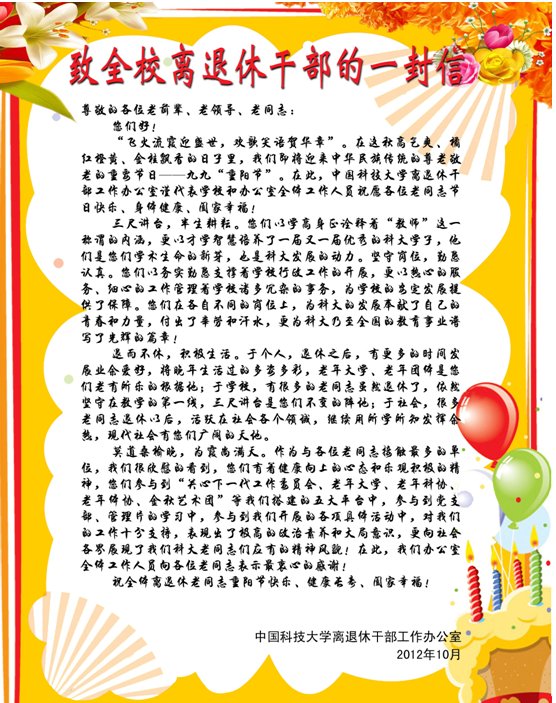 致全校离退休干部的一封信
尊敬的各位老前辈、老领导、老同志：
您们好！
“飞火流霞迎盛世，欢歌笑语贺华章”。在这秋高艺爽、橘
红橙黄、金桂飘香的日子里，我们即将迎来中华民族传统的尊老敬
老的重要节日——九九“重阳节”。在此，中国科技大学离退休干
部工作办公室谨代表学校和办公室全体工作人员祝愿各位老同志节
日快乐、身体健康、阖家幸福！
三尺讲台，半生耕耘。您们以学高身正诠释着“教师”这一
称谓的内涵，更以才学智慧培养了一届又一届优秀的科大学子，他
们是您们学术生命的新芽，也是科大发展的动力。坚守岗位，勤恳
认真。您们以务实勤恳支撑着学校行政工作的开展，更以热心的服
务、细心的工作管理着学校诸多冗杂的事务，为学校的安定发展提
供了保障。您们在各自不同的岗位上，为科大的发展奉献了自己的
青春和力量，付出了辛劳和汗水，更为科大乃至全国的教育事业谱
写了光辉的篇章！
退而不休，积极生活。于个人，退休之后，有更多的时间发
展业余爱好，将晚年生活过的多姿多彩，老年大学、老年团体是您
们老有所乐的根据地；于学校，有很多的老同志虽然退休了，依然
坚守在教学的第一线，三尺讲台是您们不变的阵地；于社会，很多
老同志退休以后，活跃在社会各个领域，继续用所学所知发挥余
热，现代社会有您们广阔的天地。
莫道桑榆晚，为霞尚满天。作为与各位老同志接触最多的单
位，我们很欣慰的看到，您们有着健康向上的心态和乐观积极的精
神，您们参与到“关心下一代工作委员会、老年大学、老年科协、
老年体协、金秋艺术团”等我们搭建的五大平台中，参与到党支
部、管理片的学习中，参与到我们开展的各项具体活动中，对我们
的工作十分支持，表现出了极高的政治素养和大局意识，更向社会
各界展现了我们科大老同志们应有的精神风貌！在此，我们办公室
全体工作人员向各位老同志表示最衷心的感谢！
祝全体离退休老同志重阳节快乐、健康长寿、阖家幸福！
中国科技大学离退休干部工作办公室
2012年10月